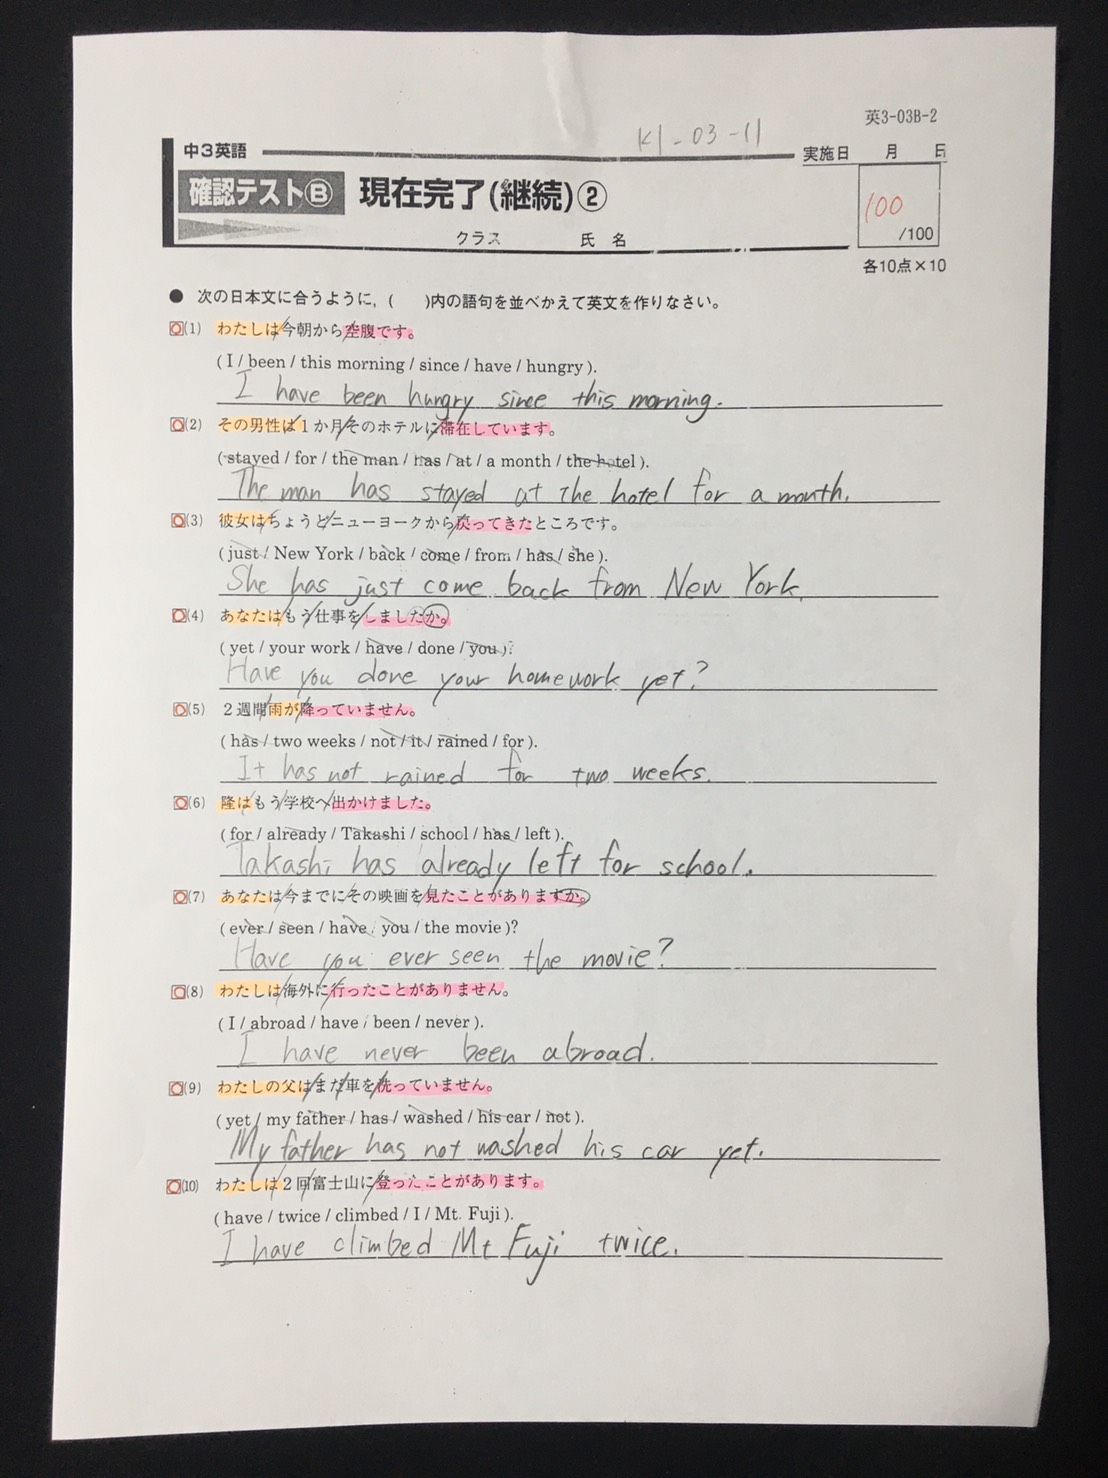 英3-03B-2
K1-03-11
中3英語
実施日 月 日
確認テストⒷ 現在完了(継続)②
100
/100
クラス 氏名
各10点×10
● 次の日本文に合うように，( )内の語句を並べかえて英文を作りなさい。
(1) わたしは今朝から空腹です。
( I / been / this morning / since / have / hungry ).
I have been hungry since this morning.
(2) その男性は1か月そのホテルに滞在しています。
( stayed / for / the man / has / at / a month / the hotel ).
The man has stayed at the hotel for a month.
(3) 彼女はちょうどニューヨークから戻ってきたところです。
( just / New York / back / come / from / has / she ).
She has just come back from New York.
(4) あなたはもう仕事をしましたか。
( yet / your work / have / done / you )?
Have you done your homework yet?
(5) 2週間雨が降っていません。
( has / two weeks / not / it / rained / for ).
It has not rained for two weeks.
(6) 隆はもう学校へ出かけました。
( for / already / Takashi / school / has / left ).
Takashi has already left for school.
(7) あなたは今までにその映画を見たことがありますか。
( ever / seen / have / you / the movie )?
Have you ever seen the movie?
(8) わたしは海外に行ったことがありません。
( I / abroad / have / been / never ).
I have never been abroad.
(9) わたしの父はまだ車を洗っていません。
( yet / my father / has / washed / his car / not ).
My father has not washed his car yet.
(10) わたしは2回富士山に登ったことがあります。
( have / twice / climbed / I / Mt. Fuji ).
I have climbed Mt Fuji twice.